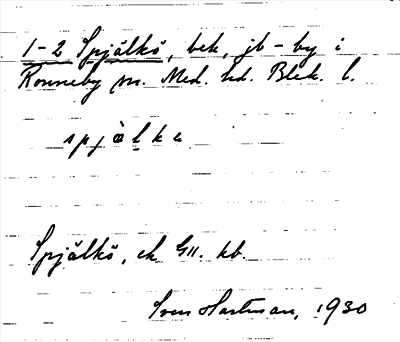 1-2 Spjälkö, bek, jb-by i
Ronneby sn. Med. hd. Blek. l.
spjälkə
Spjälkö, ek GII. kb.
Sven Hartman, 1930